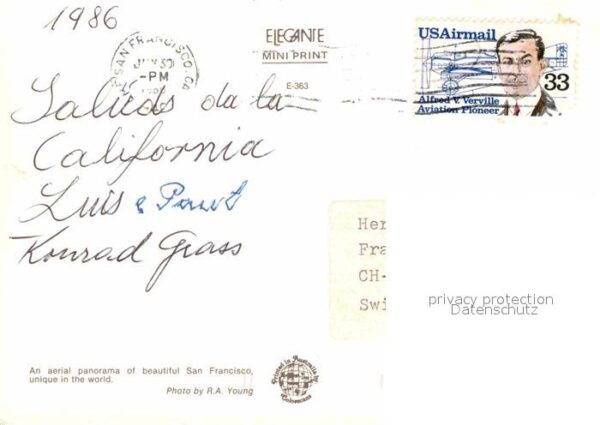 1986
SAN FRANCISCO, CA
PM
ELEGANTE
MINI PRINT
E-363
USAirmail
33
Alfred V. Verville
Aviation Pioneer
Saluds da la
California
Luis e
Konrad Grass
Her
Fra
CH-
Swi
privacy protection
Datenschutz
An aerial panorama of beautiful San Francisco,
unique in the world.
Photo by R.A. Young
Printed in Australia by